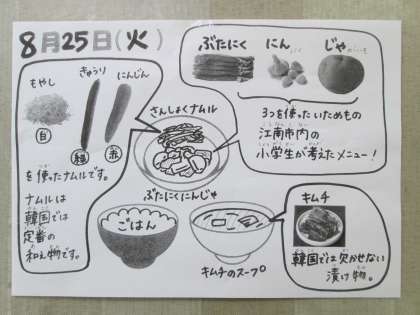 8月25日(火)
もやし
きゅうり
にんじん
白
緑
赤
を使ったナムルです。
ナムルは
韓国では
定番の
和え物です。
さんしょくナムル
ぶたにく
にん
にく
じゃ
がいも
3つを使ったいためもの
江南市内の
小学生が考えたメニュー!
ぶたにくにんじゃ
ごはん
キムチのスープ
キムチ
韓国では欠かせない
漬け物。